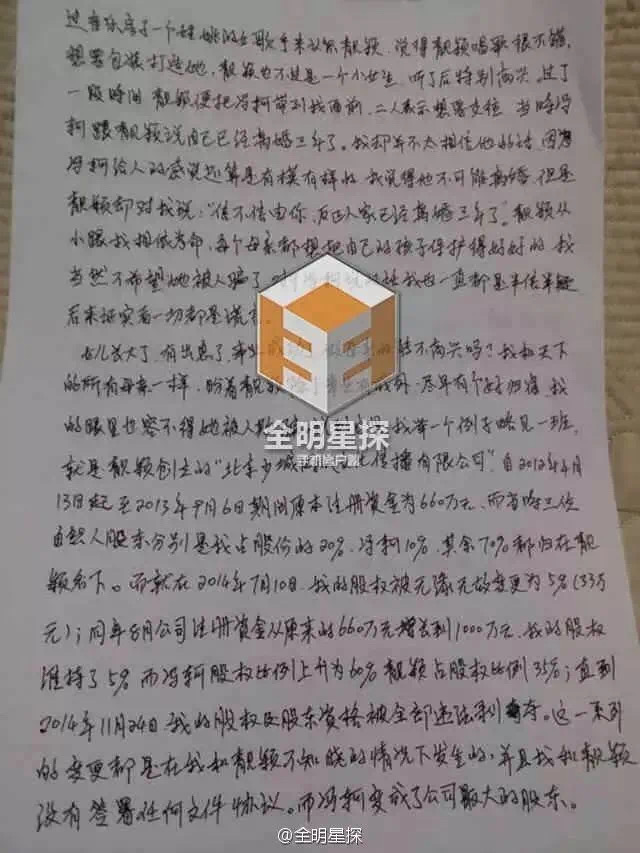 过音乐房了一个姓姚的女歌手来认识靓颖，说得靓颖唱歌很不错，
想要包装打造她，靓颖也不过是一个小女生，听了后特别高兴。过了
一段时间靓颖便把冯柯带到我面前，二人表示想要交往，当时冯
柯跟靓颖说自己已经离婚三年了。我却并不太相信他的话，因为
冯柯给人的感觉还算是有模有样的，我觉得他不可能离婚，但是
靓颖却对我说：“信不信由你，反正人家已经离婚三年了”。靓颖从
小跟我相依为命，每个母亲都想把自己的孩子保护得好好的，我
当然不希望她被人骗了 冯柯说的话我也一直都是半信半疑
后来证实着一切都是谎言。
女儿长大了，有出息了，事业成功 能不高兴吗？我和天下
的所有母亲一样，盼着靓颖 尽早有个好归宿，我
的眼里也容不得她被人欺 我举一个例子略见一斑，
就是靓颖创立的“北京少城 文化传播有限公司”，自2012年4月
13日起至2013年9月6日期间原本注册资金为660万元，而当时三位
自然人股东分别是我占股份的20%，冯柯10%，其余70%都归在靓
颖名下。而就在2014年7月10日，我的股权被无缘无故变更为5%(33万
元)；同年8月公司注册资金从原来的660万元增长到1000万元，我的股权
维持了5%而冯轲股权比例上升为60%靓颖占股权比例35%；直到
2014年11月24日，我的股权及股东资格被全部违法剥夺。这一系列
的变更都是在我和靓颖不知晓的情况下发生的，并且我和靓颖
没有签署任何文件协议。而冯轲变成了公司最大的股东。
全明星探
手机客户端
@全明星探